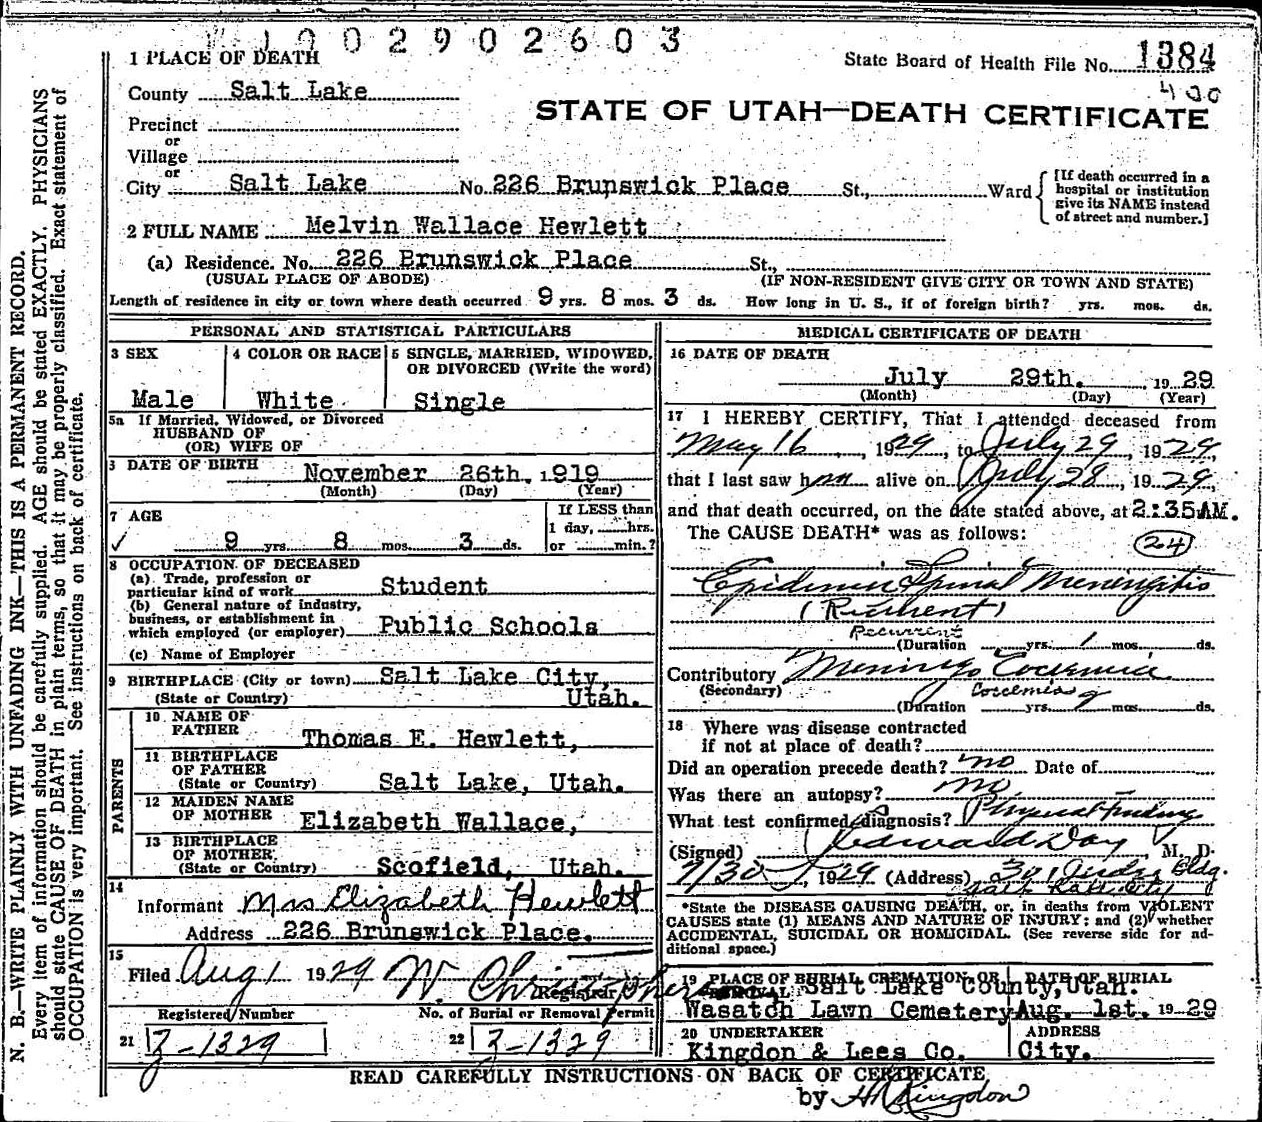 1002902603
1 PLACE OF DEATH
State Board of Health File No. 1384
400
County Salt Lake
STATE OF UTAH—DEATH CERTIFICATE
Precinct
or
Village
or
City Salt Lake No. 226 Brunswick Place St., Ward
[If death occurred in a hospital or institution give its NAME instead of street and number.]
2 FULL NAME Melvin Wallace Hewlett
(a) Residence. No. 226 Brunswick Place St.,
(USUAL PLACE OF ABODE) (IF NON-RESIDENT GIVE CITY OR TOWN AND STATE)
Length of residence in city or town where death occurred 9 yrs. 8 mos. 3 ds. How long in U. S., if of foreign birth? yrs. mos. ds.
PERSONAL AND STATISTICAL PARTICULARS
3 SEX
Male
4 COLOR OR RACE
White
5 SINGLE, MARRIED, WIDOWED, OR DIVORCED (Write the word)
Single
5a If Married, Widowed, or Divorced
HUSBAND OF
(OR) WIFE OF
6 DATE OF BIRTH November 26th, 1919
(Month) (Day) (Year)
7 AGE
9 yrs. 8 mos. 3 ds.
If LESS than
1 day, hrs.
or min.?
8 OCCUPATION OF DECEASED
(a) Trade, profession or
particular kind of work Student
(b) General nature of industry,
business, or establishment in
which employed (or employer) Public Schools
(c) Name of Employer
9 BIRTHPLACE (City or town) Salt Lake City,
(State or Country) Utah.
PARENTS
10 NAME OF
FATHER Thomas E. Hewlett,
11 BIRTHPLACE
OF FATHER
(State or Country) Salt Lake, Utah.
12 MAIDEN NAME
OF MOTHER Elizabeth Wallace,
13 BIRTHPLACE
OF MOTHER
(State or Country) Scofield, Utah.
14
Informant Mrs Elizabeth Hewlett
Address 226 Brunswick Place.
15
Filed Aug 1 1929 W. Christopher
Registrar
Registered Number No. of Burial or Removal Permit
21 Z-1329 22 Z-1329
MEDICAL CERTIFICATE OF DEATH
16 DATE OF DEATH
July 29th. 1929
(Month) (Day) (Year)
17 I HEREBY CERTIFY, That I attended deceased from
May 16, 1929, to July 29, 1929,
that I last saw him alive on July 28, 1929,
and that death occurred, on the date stated above, at 2:35AM.
The CAUSE DEATH* was as follows:
24
Epidemic Spinal Meningitis
(Recurrent)
Recurrent
(Duration yrs. 1 mos. ds.
Contributory Meningo Coccemia
(Secondary) Coccemia
(Duration yrs. mos. ds.
18 Where was disease contracted
if not at place of death?
Did an operation precede death? no Date of
Was there an autopsy? no
What test confirmed diagnosis? Physical finding
(Signed) Edward Day M. D.
7/30, 1929 (Address) 301 Judge Bldg.
Salt Lake City
*State the DISEASE CAUSING DEATH, or, in deaths from VIOLENT
CAUSES state (1) MEANS AND NATURE OF INJURY; and (2) whether
ACCIDENTAL, SUICIDAL OR HOMICIDAL. (See reverse side for ad-
ditional space.)
19 PLACE OF BURIAL CREMATION OR REMOVAL DATE OF BURIAL
Salt Lake County, Utah.
Wasatch Lawn Cemetery Aug. 1st. 1929
20 UNDERTAKER ADDRESS
Kingdon & Lees Co. City.
READ CAREFULLY INSTRUCTIONS ON BACK OF CERTIFICATE
by Kingdon
N. B.—WRITE PLAINLY WITH UNFADING INK—THIS IS A PERMANENT RECORD.
Every item of information should be carefully supplied. AGE should be stated EXACTLY. PHYSICIANS
should state CAUSE OF DEATH in plain terms, so that it may be properly classified. Exact statement of
OCCUPATION is very important. See instructions on back of certificate.